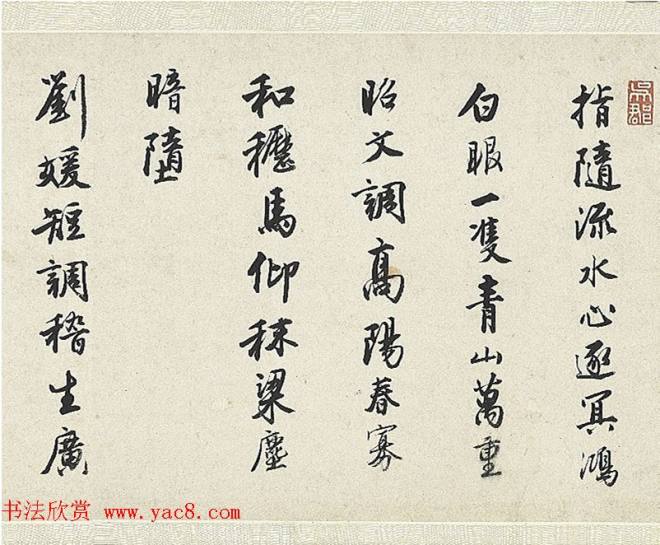 指隨流水心逐冥鴻
白眼一隻青山萬重
昭文調高陽春寡
和櫪馬仰秣梁塵
暗墮
劉媛短調稽生廣
吳郡
书法欣赏 www.yac8.com